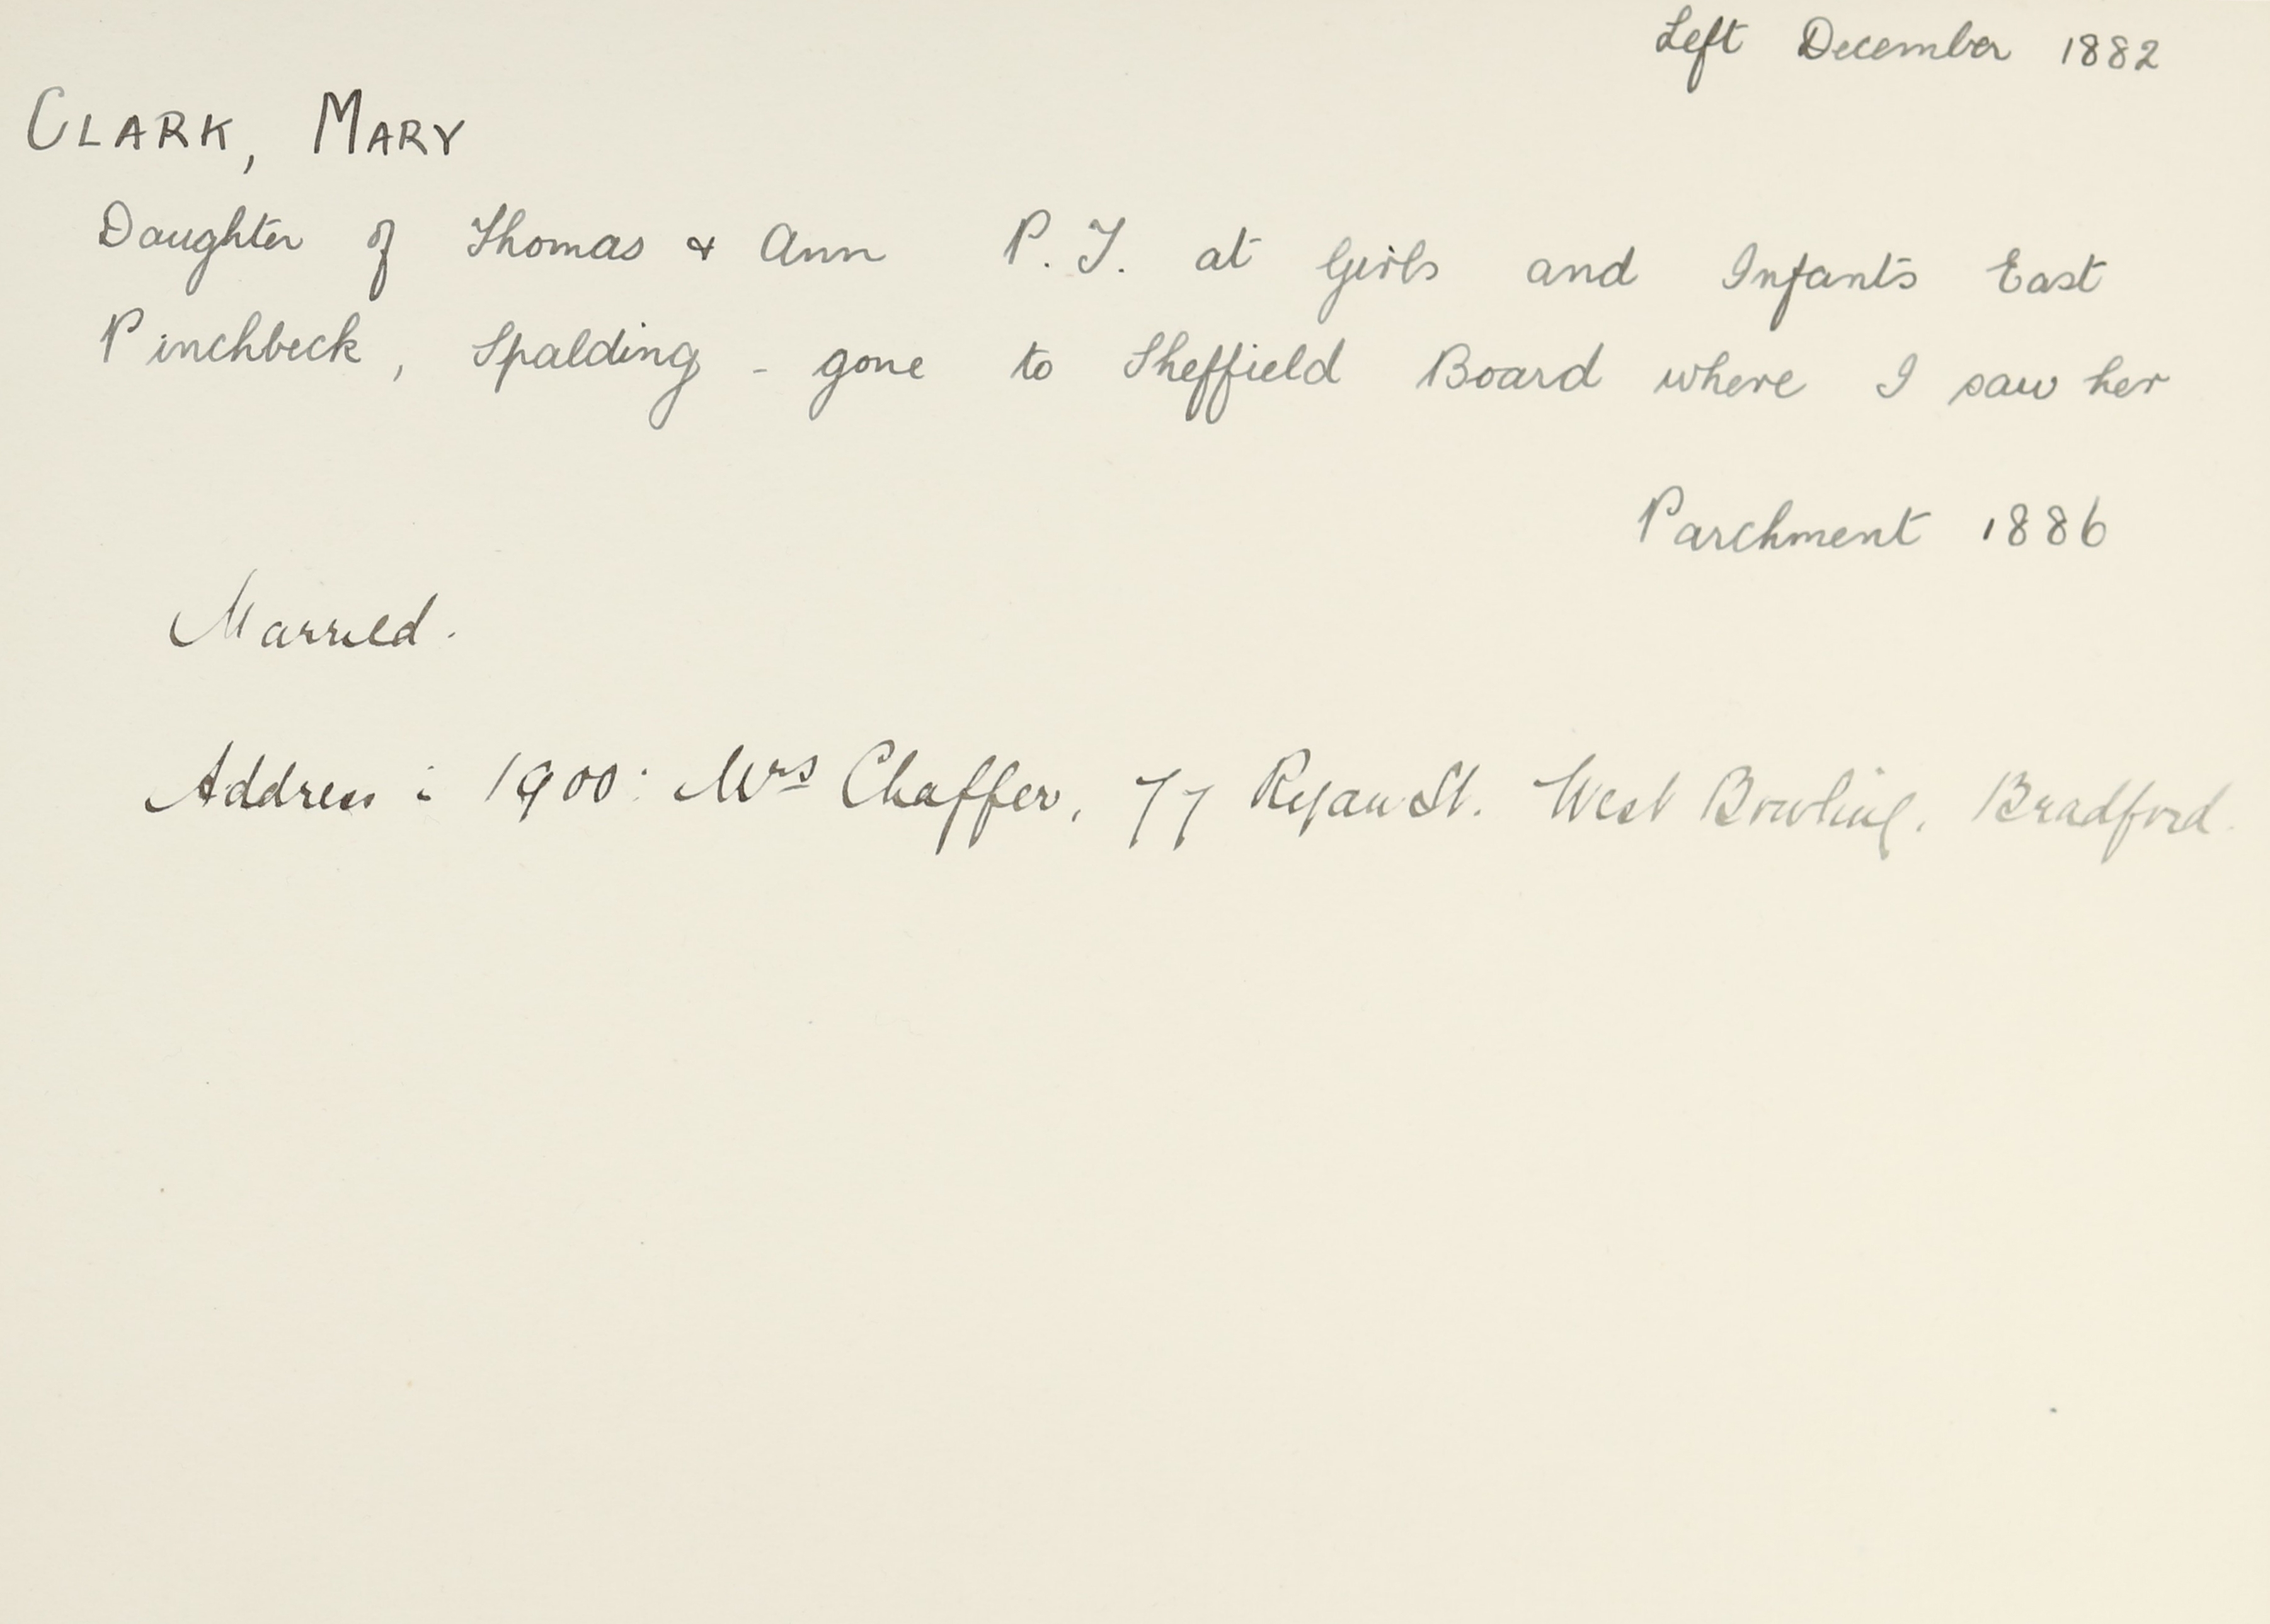 Left December 1882
CLARK, MARY
Daughter of Thomas & Ann P.T. at Girls and Infants East
Pinchbeck, Spalding - gone to Sheffield Board where I saw her
Parchment 1886
Married.
Address : 1900 : Mrs Chaffer, 77 Ryan St. West Bowling, Bradford.